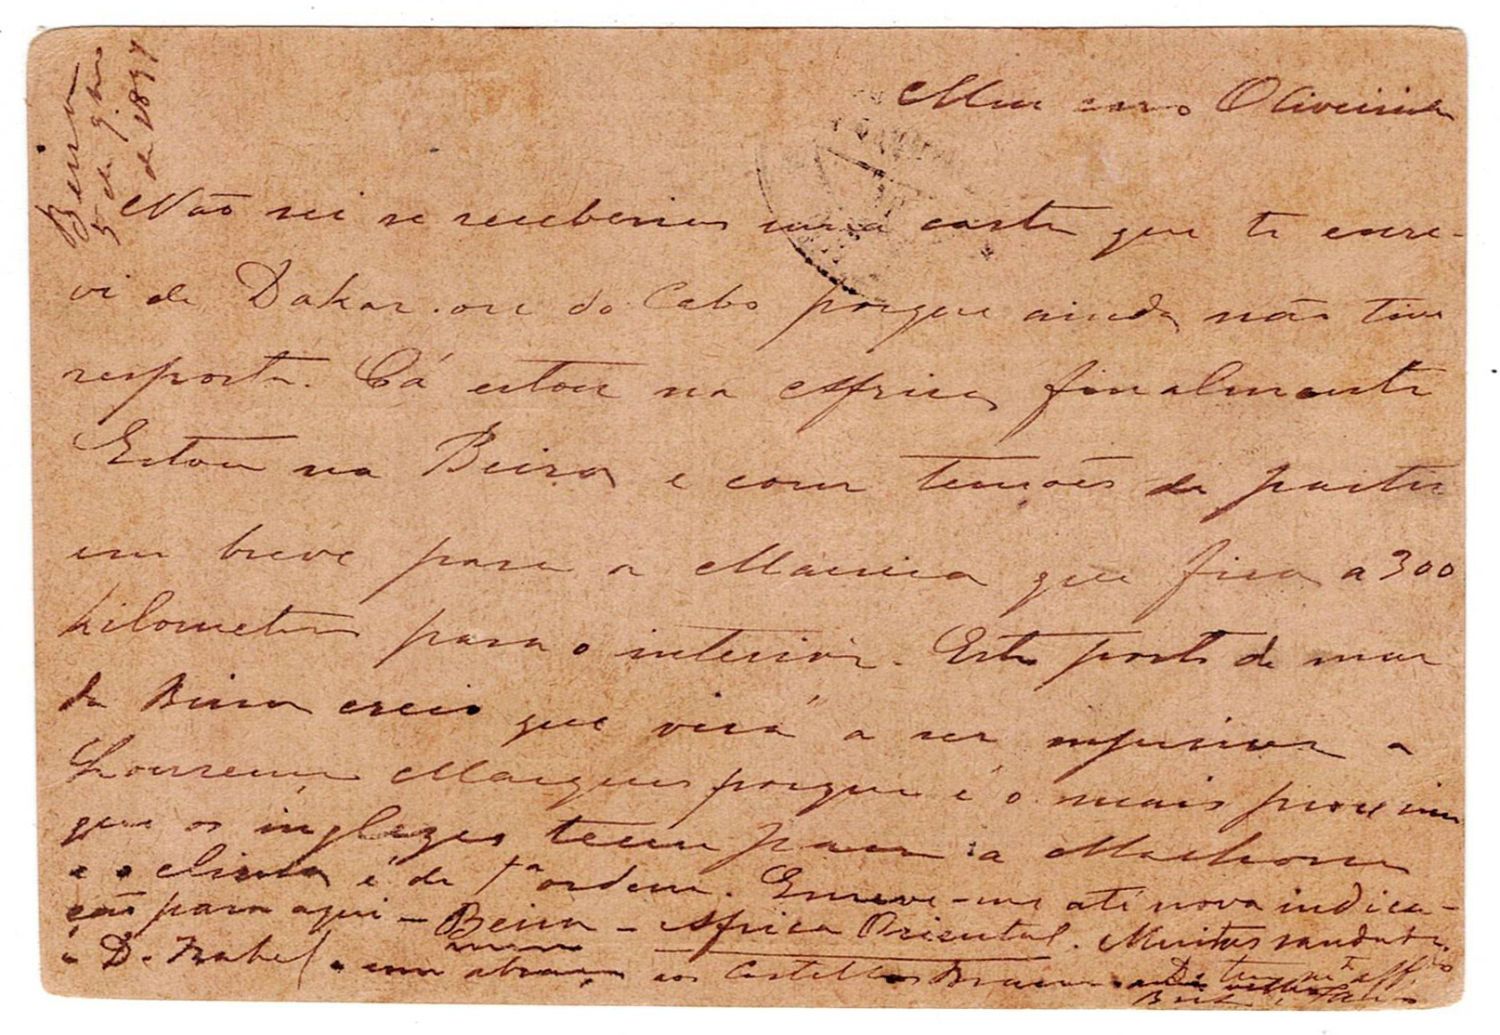 Beira
5 de 9bro
de 1897
Meu caro Oliveira
Não sei se receberias uma carta que te escre-
vi de Dakar ou do Cabo porque ainda não tive
resposta. Cá estou na Africa finalmente
Estou na Beira e com tenções de partir
em breve para a Manica que fica a 300
kilometros para o interior. Este porto de mar
da Beira creio que virá a ser superior a
Lourenço Marques porque é o mais proximo
que os inglezes teem para a Machona
e o clima é de 1ª ordem. Escreve-me até nova indica-
ção para aqui - Beira - Africa Oriental. Muitas saudades
á D. Izabel e um abraço aos Castello Branco